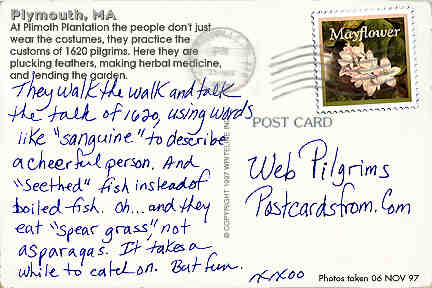 Plymouth, MA
At Plimoth Plantation the people don't just
wear the costumes, they practice the
customs of 1620 pilgrims. Here they are
plucking feathers, making herbal medicine,
and tending the garden.
They walk the walk and talk
the talk of 1620, using words
like "sanguine" to describe
a cheerful person. And
"seethed" fish instead of
boiled fish. Oh... and they
eat "spear grass", not
asparagas. It takes a
while to catch on. But fun.
xxoo
Mayflower
POST CARD
Web Pilgrims
Postcardsfrom.Com
Photos taken 06 NOV 97